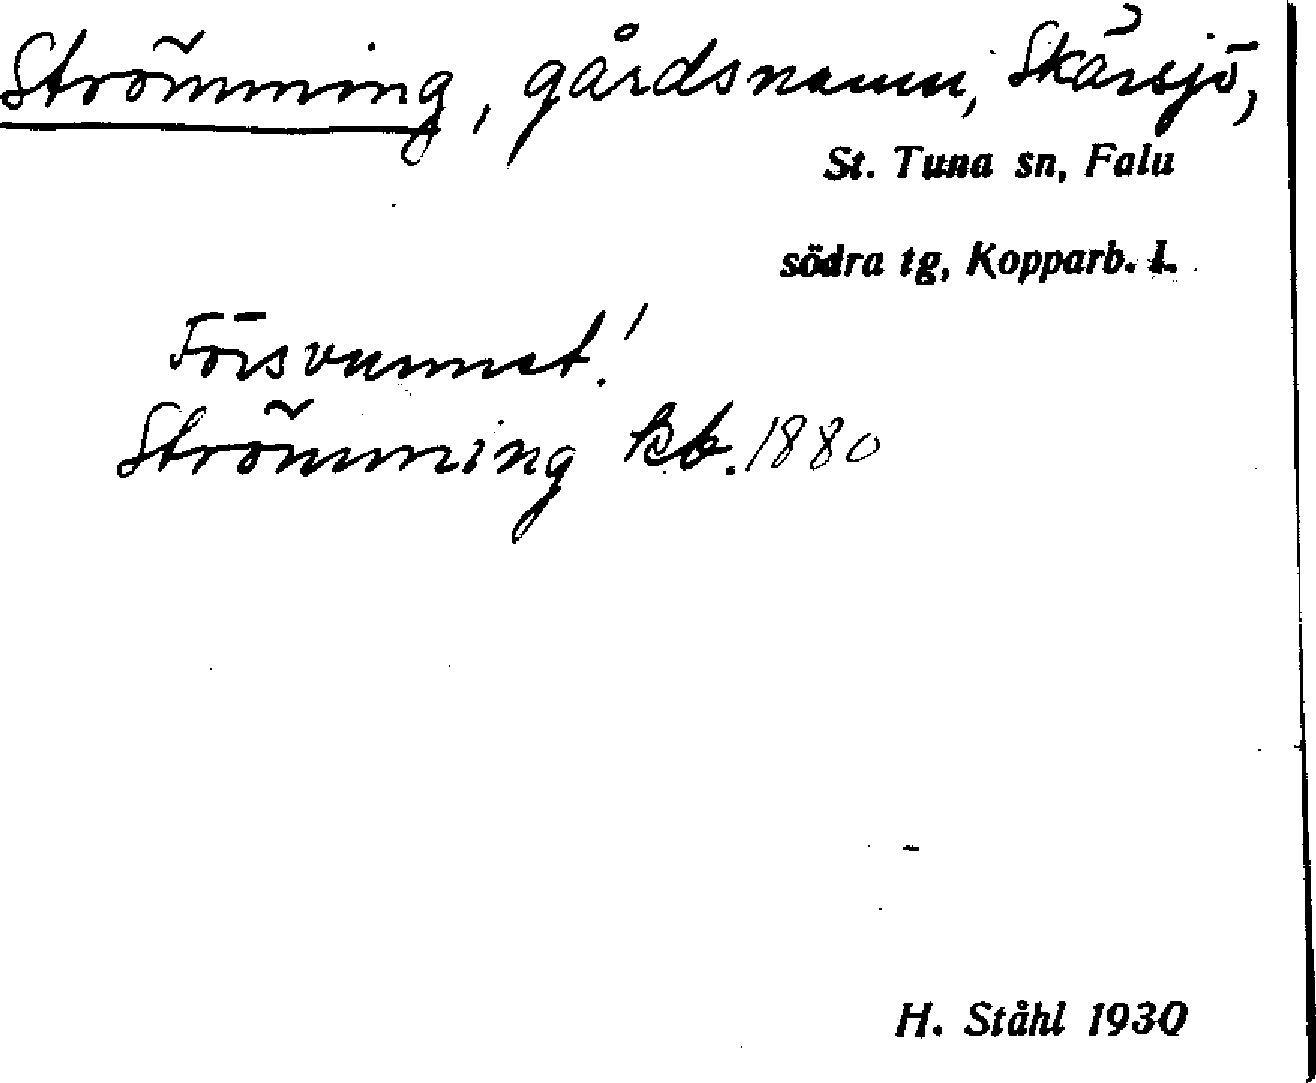 Strömming, gårdsnamn, Skärsjö,
St. Tuna sn, Falu
södra tg, Kopparb. l.
Försvunnet!
Strömming kb. 1880
H. Ståhl 1930